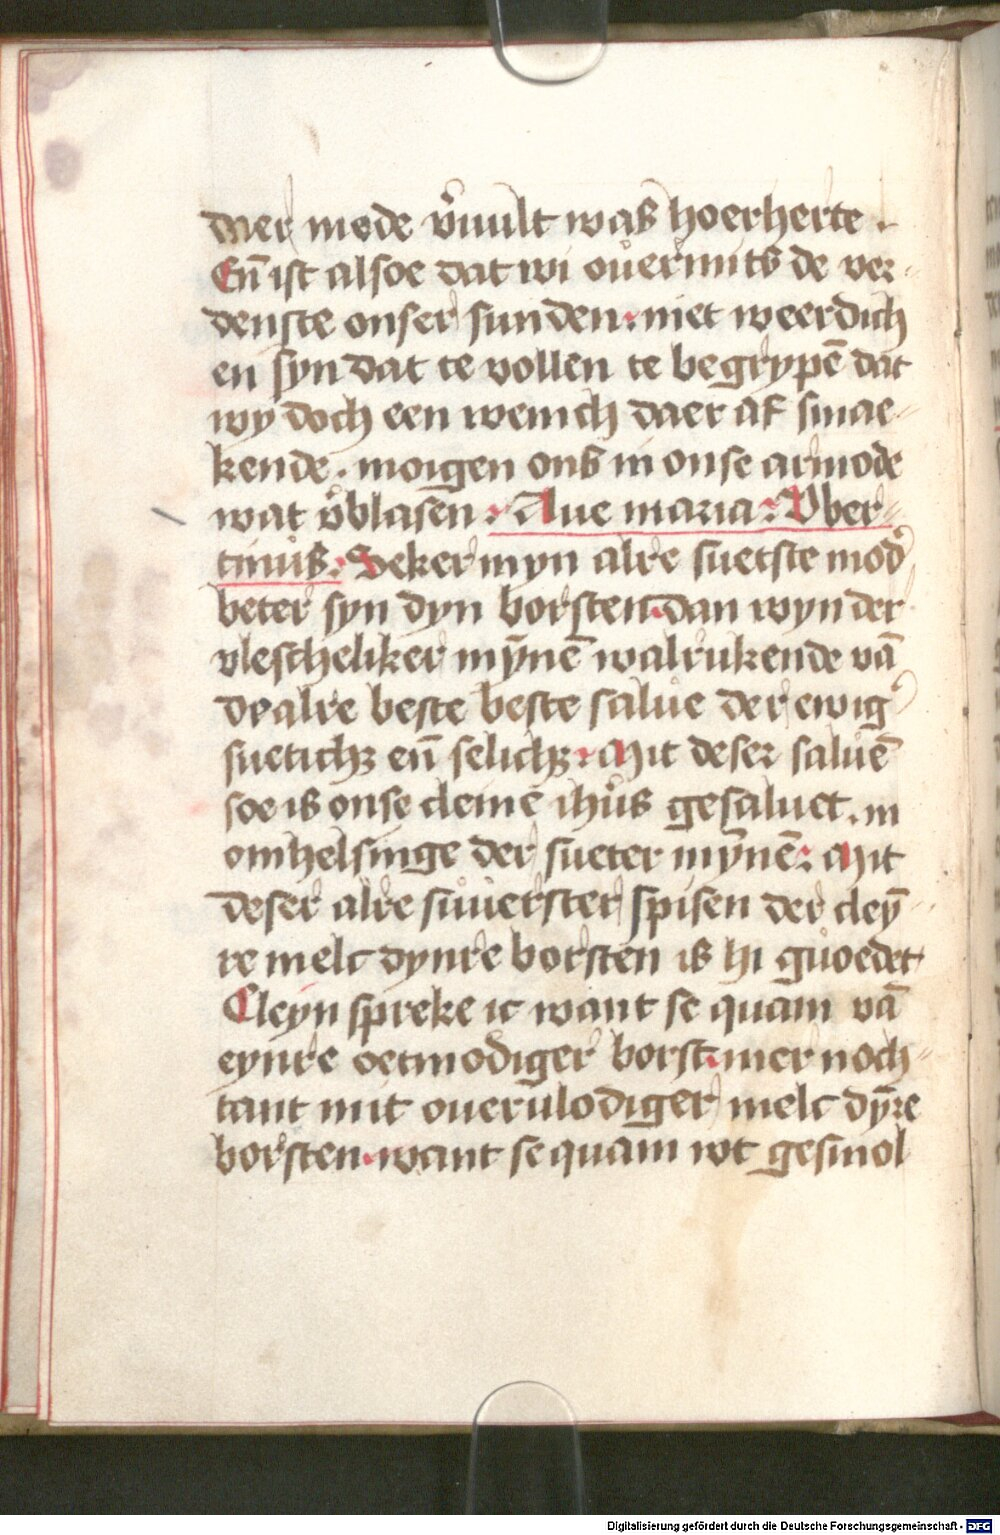 daer mede v̊uult was hoer herte .
En̄ ist alsoe dat wi ou̇ermits de ver-
denste onser sunden. niet weerdich
en syn dat te vollen te begrypē dat
wy doch een wenich daer af smae-
kende. moigen ons in onse armode
wat v̊blasen. Aue maria. Vber-
tinu̇s. Seker myn alre suetste mod̕
beter syn dyn borsten. dan wyn der
vlescheliker mȳnē walrukende vā
dyalre beste beste salu̇e der ewig̕
suetichꝫ en̄ selichꝫ. Mit deser salu̇ē
soe is onse cleinē ihu̇s gesaluet. in
omhelsinge der sueter mȳnē. Mit
deser alre su̇uerster spisen der cley̅-
re melc dynre borsten is hi gu̇oedet
Cleyn spreke ic want se quam vā
eynre oetmodiger borst. mer noch-
tant mit oueru̇lodiger melc dȳre
borsten. want se quam wt gesmol
Digitalisierung gefördert durch die Deutsche Forschungsgemeinschaft - DFG